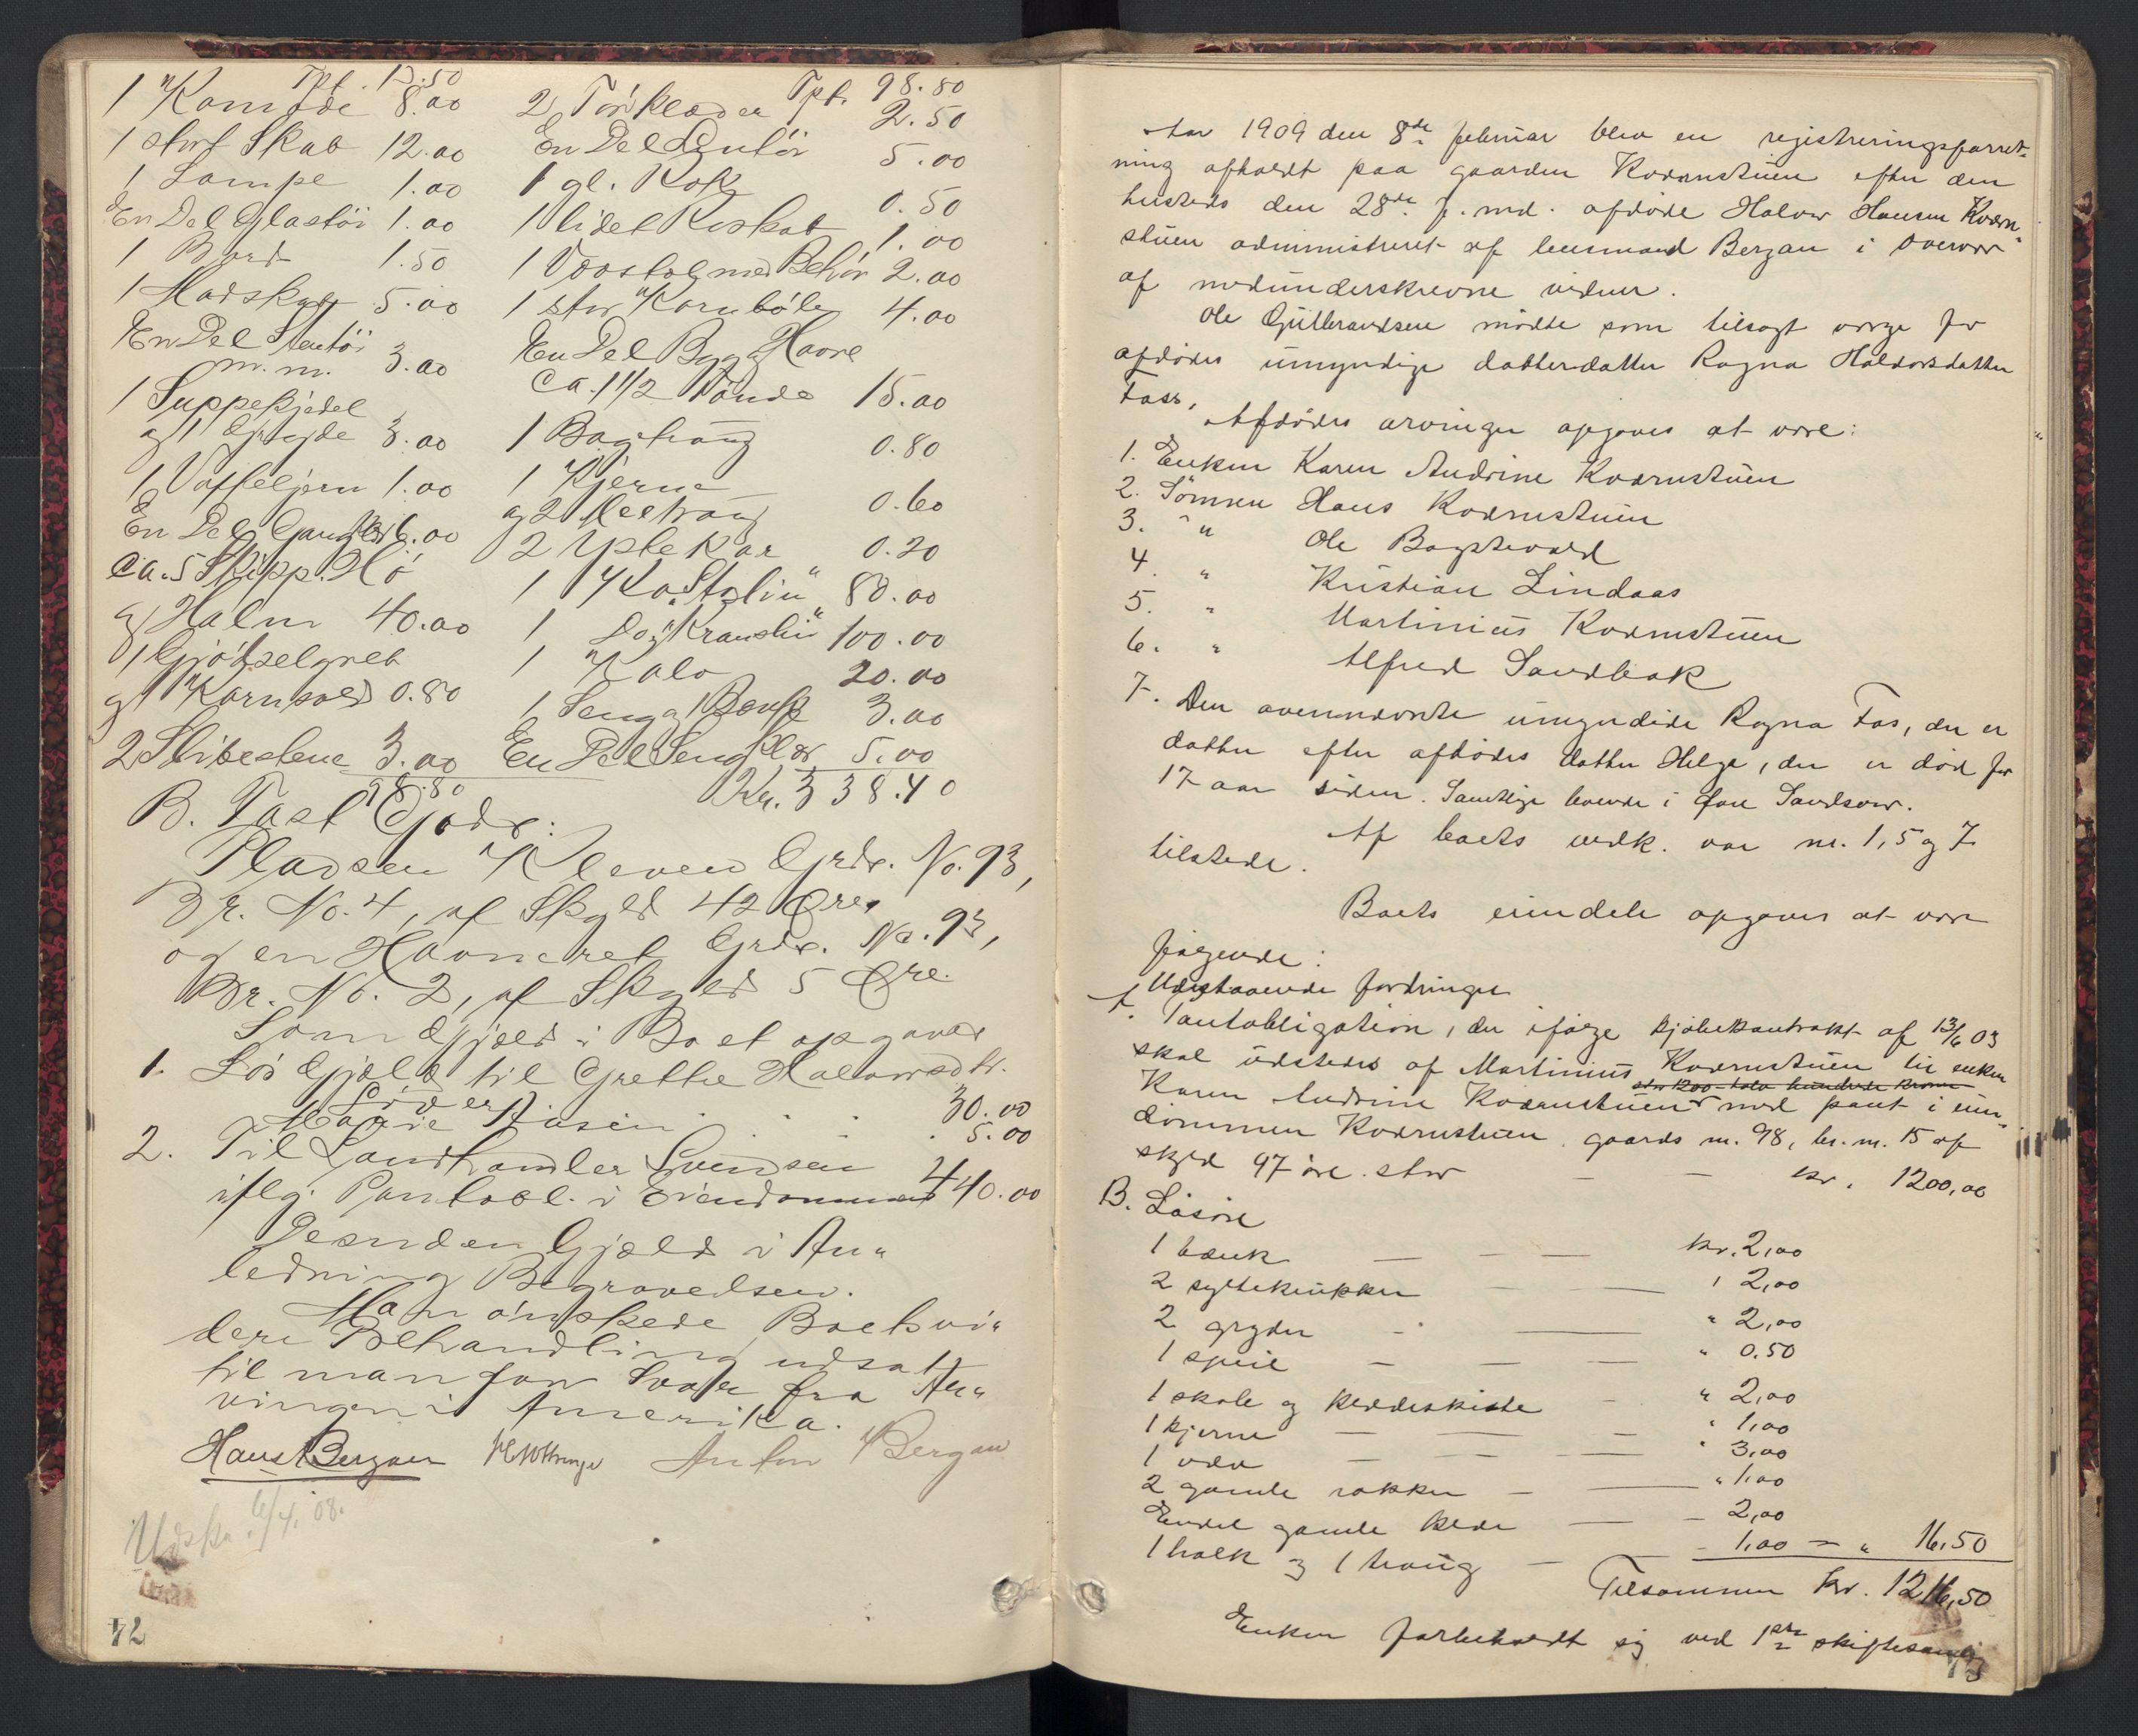 Tpt. 13.50
1 Komode 8.00
1 stort Skab 12.00
1 Lampe 1.00
En Del Glastöi 1.00
1 Bord 1.50
1 Madskab 5.00
En Del Stentöi
m.m. 3.00
1 Suppekjedel
og 1 Gryde 3.00
1 Vaffeljern 1.00
En Del Gangklær 6.00
Ca. 5 Skipp. Hö
og Halm 40.00
1 Gjödselgreb
og 1 Kornsold 0.80
2 Slibestene 3.00
98.80
Tpt. 98.80
2 Törklæder 2.50
En Del Lentöi 5.00
1 gl. Rok 0.50
1 lidet Roskab 1.00
1 Vævstol med Behör 2.00
1 stor Kornbøle 4.00
En Del Byg og Havre
ca. 1 1/2 Tönde 15.00
1 Bagetraug 0.80
1 Kjerne
og 2 Meltraug 0.60
2 Yste Kar 0.20
1 Ko "Stalin" 80.00
1 Do "Kranslin" 100.00
1 Kalv 20.00
1 Seng og 1 Bænk 3.00
En Del Sengklær 5.00
Kr. 338.40
B. Fast Gods:
Pladsen Kleven Grds. No. 93,
Br. No. 4, af Skyld 42 Øre,
og en Havneret Grds. No. 93,
Br. No. 2, af Skyld 5 Øre.
Som Gjæld i Boet opgaves
1. Lös Gjæld til Grethe Halvorsdtr.
30.00
Marie Aasen . . . 5.00
2. Til Landhandler Svendsen
iflg. Pantobl. i Eiendommen 440.00
Desuden Gjæld i An-
ledning Begravelsen.
Man önskede Boets vi-
dere Behandling udsat
til man faar Svar fra Ar-
vingen i Amerika.
Hans Bergan Anton Bergan
Udskr. 6/4. 08.
72
Aar 1909 den 8de februar blev en registreringsforret-
ning afholdt paa gaarden Kværnstuen efter den
husteds den 28de f. md. afdöde Halvor Hansen Kværn-
stuen administreret af lensmand Bergan i overvær
af nedunderskrevne vidner.
Ole Gulbrandsen mödte som tilsagt værge for
afdödes umyndige datterdatter Ragna Haldorsdatter
Foss.
Afdödes arvinger opgaves at være:
1. Enken Karen Andrine Kværnstuen
2. Sönnen Hans Kværnstuen
3. " Ole Bagstevold
4. " Kristian Lindaas
5. " Martinius Kværnstuen
6. " Alfred Sandbak
7. Den ovennævnte umyndide Ragna Fos, der er
datter efter afdödes datter Helga, der er död for
17 aar siden. Samtlige boende i Søndre Sandsvær.
Af boets vedk. var nr. 1, 5 og 7
tilstede.
Boets eiendele opgaves at være
fölgende:
A. Udestaaende fordringer
Pantobligation, der ifölge kjöbekontrakt af 13/6 03
skal udstedes af Martinius Kværnstuen til enken
stor 1200 – tolv hundrede kroner
Karen Andrine Kværnstuen mod pant i eien-
dommen Kværnstuen, gaards nr. 98, br. nr. 15 af
skyld 97 öre. stor – – kr. 1200,00
B. Lösöre
1 bænk — — — kr. 2,00
2 syltekrukker — — " 2,00
2 gryder — — " 2,00
1 speil — — — " 0.50
1 skole og klædeskiste — " 2,00
1 kjerne — — — " 1,00
1 vev — — — " 3,00
2 gamle rokker — — " 1,00
Endel gamle klæde — — 2,00
1 holk og 1 traug — — 1,00 = " 16,50
Tilsammen kr. 1216,50
Enken forbeholdt sig ved 1ste skiftesamling
73